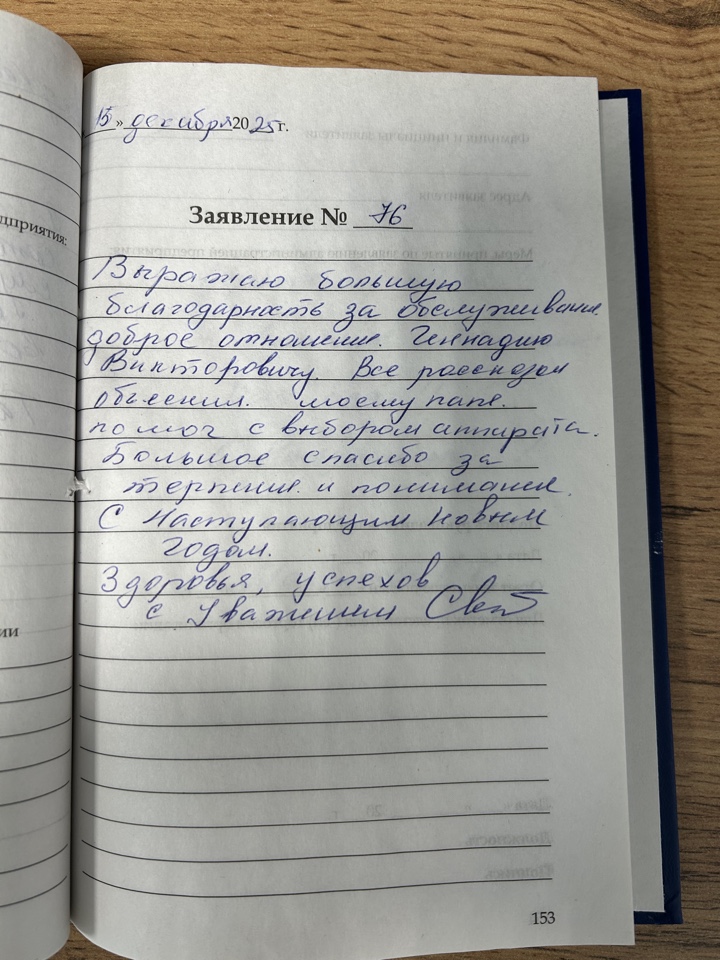 15 » декабря 2025 г.
Заявление № 76
Выражаю большую
благодарность за обслуживание
доброе отношение. Геннадию
Викторовичу. Все рассказал
объяснил. моему папе.
помог с выбором аппарата.
Большое спасибо за
терпение. и понимание.
С Наступающим Новым
годом.
Здоровья, успехов
с Уважением
153